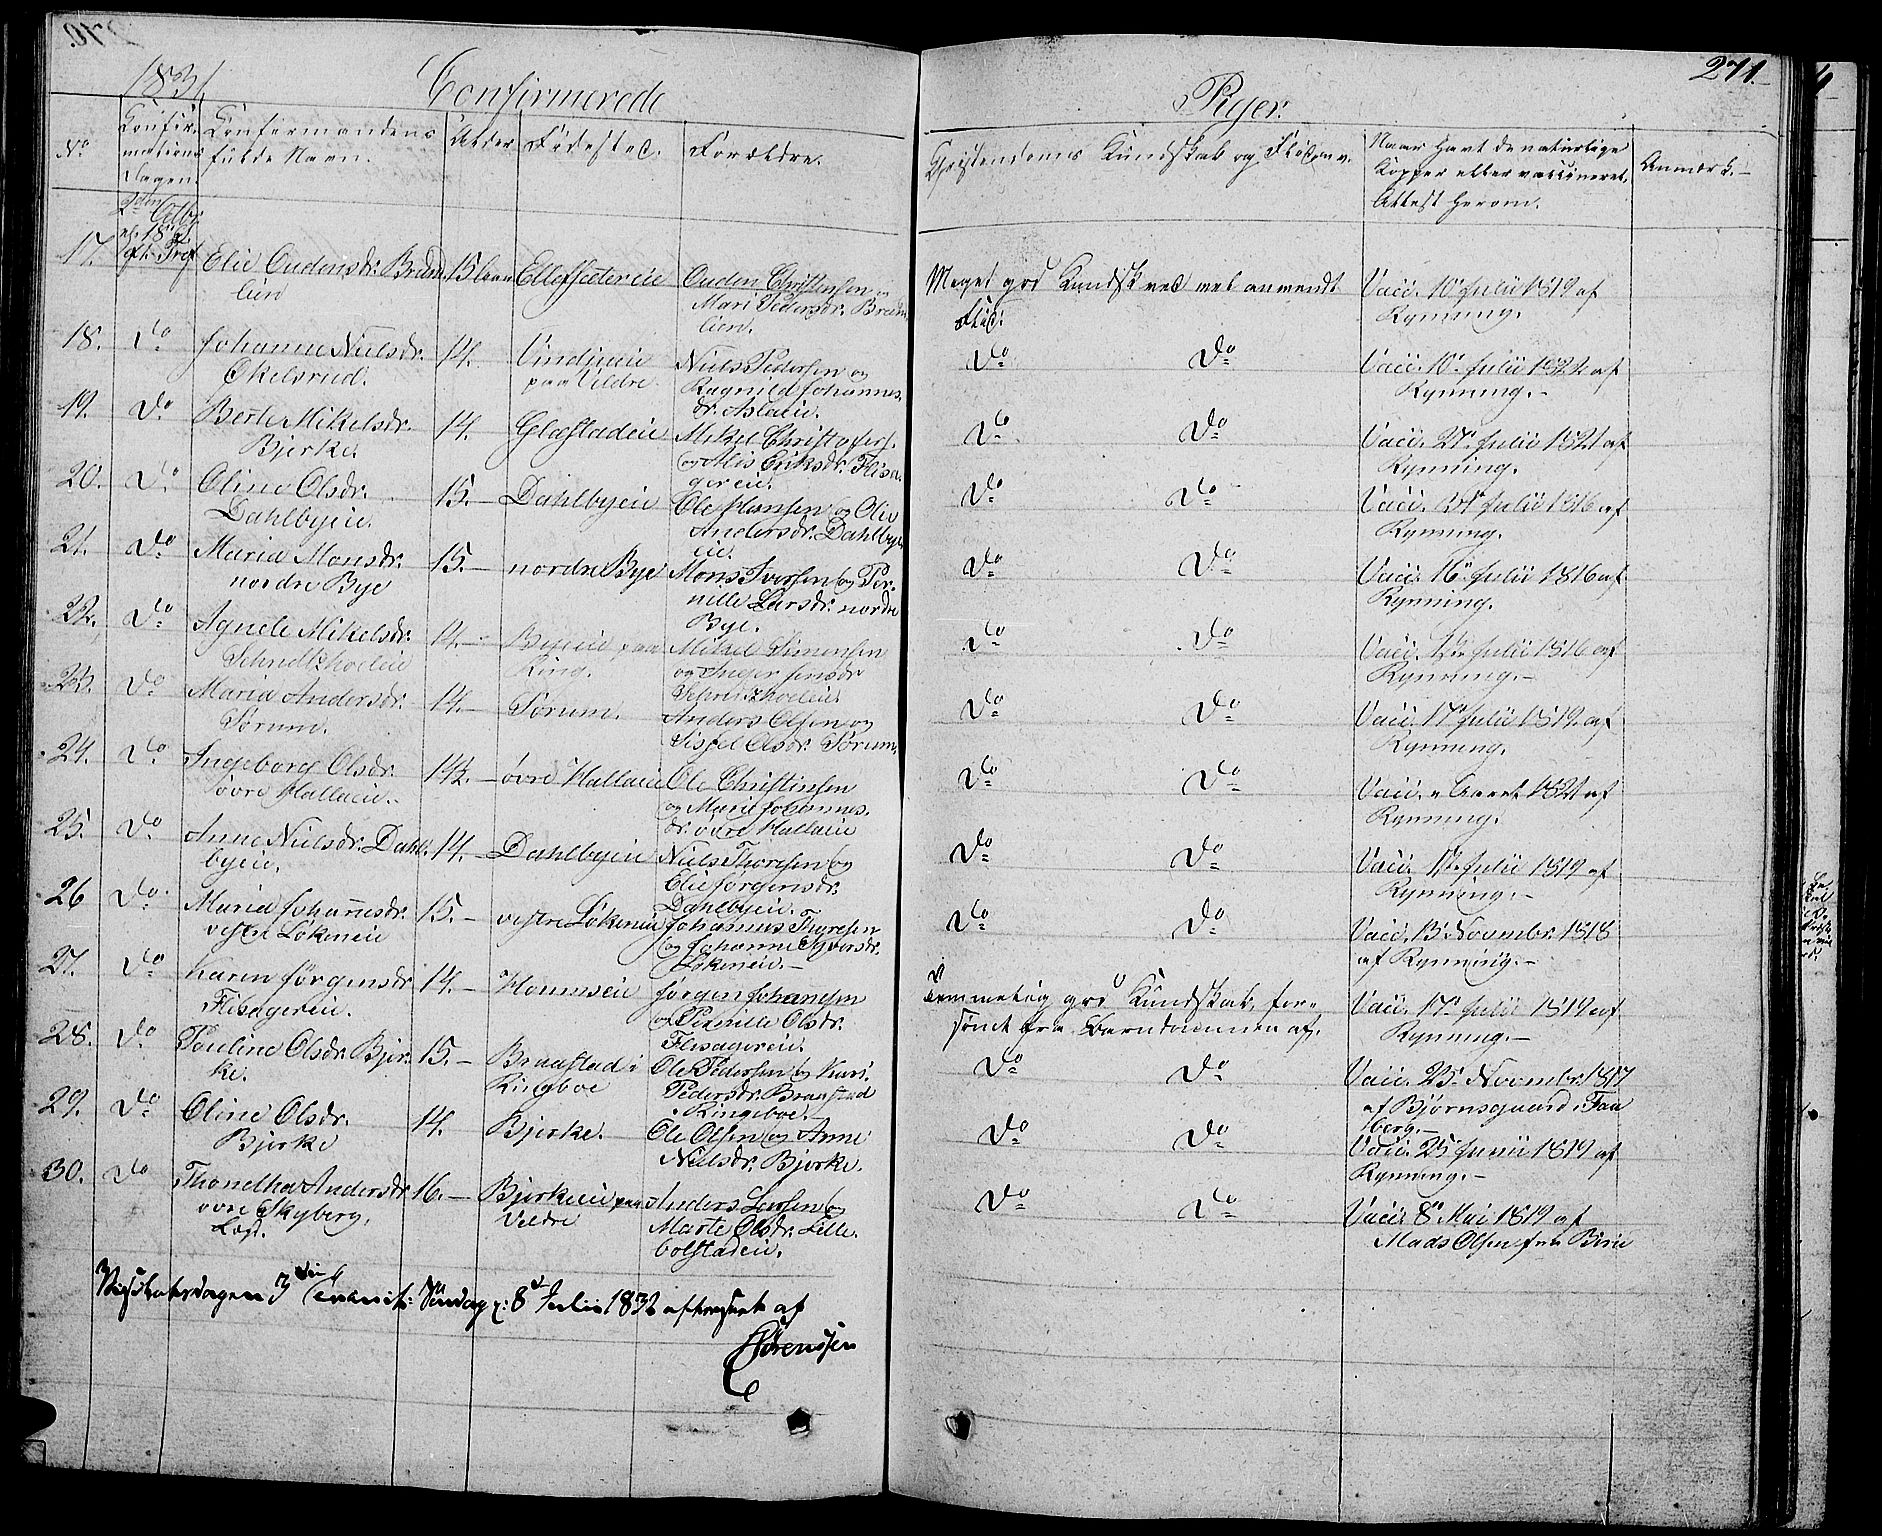 271.
1831
Confirmerede
Piger.
No
Confir-
mations
Dagen.
Confirmandens
fulde Navn.
Alder
Fødested.
Forældre.
Christendoms Kundskab og Flid m.v.
Naar havt de naturlige
Kopper eller vaccineret,
Attest herom.
Anmærk.
17.
Elie Oudensdr. Bræm
lien
15 Aar
Ellefsætereie
Ouden Christensen
Mari Pedersdr. Bræm
lien.
Meget god Kundskab vel anvendt
Flid.
Vacc. 10 Julii 1819 af
Rynning.
18.
Do
Johanne Nielsdr.
Ekelsrud.
14.
paa Veldre
Niels Pedersen og
Ragnild Johannes
dr. Aslaeie.
Do
Do
Vacc. 10 Julii 1821 af
Rynning.
19.
Do
Berte Mikelsdr.
Bjerke.
14.
Glæstadeie
Mikel Christophers.
og Alis Eriksdr. Flisa-
gereie.
Do
Do
Vacc. 27 Julii 1821 af
Rynning.
20.
Do
Oline Olsdr.
Dahlbyeie.
15.
Dahlbyeie
Ole Hansen og Olia
Andersdr. Dahlbye
eie.
Do
Do
Vacc. Julii 1816 af
Rynning.
21.
Do
Maria Monsdr.
nordre Bye
15.
nordre Bye
Mons Iversen og Per-
nille Larsdr. nordre
Bye.
Do
Do
Vacc. 16 Julii 1816 af
Rynning.
22.
Do
Agnete Mikelsdr.
14.
Byeeie paa
Ring.
Mikel Simensen
og Inger Jensdr
Do
Do
Vacc. Julii 1816 af
Rynning.
23.
Do
Maria Andersdr.
Sørum.
14.
Sørum.
Anders Olsen og
Sissel Olsdr. Sørum
Do
Do
Vacc. 17 Julii 1819 af
Rynning.
24.
Do
Ingeborg Olsdr.
øvre Hallaeie.
14½.
øvre Hallaeie
Ole Christensen
og Marit Johannes-
dr. øvre Hallaeie
Do
Do
Vacc. i Aaret 1821 af
Rynning.
25.
Do
Anne Nielsdr. Dahl-
byeie.
14.
Dahlbyeie
Niels Thoresen og
Elie Jørgensdr.
Dahlbyeie.
Do
Do
Vacc. Julii 1819 af
Rynning.
26
Do
Maria Johannesdr.
vestre Løkeneie
15.
vestre Løkeneie
Johannes Thoresen
og Johanne Syversdr.
Løkeneie.
Do
Do
Vacc. 13 Novembr. 1818
af Rynning.
27.
Do
Karen Jørgensdr
Flisagereie.
14.
Hommeie
Jørgen Johansen
og Pernille Olsdr.
Flisagereie.
Temmelig god Kundskab, for-
sømt fra Barndommen af.
Vacc. 17 Julii 1819 af
Rynning.
28.
Do
Pauline Olsdr. Bjer-
ke.
15.
Braastad i
Ringboe
Ole Pedersen og Kari
Pedersdr. Braastad
Ringeboe.
Do
Do
Vacc. 25 Novembr. 1817
af Bjørnsgaard i Faa
berg.
29.
Do
Oline Olsdr.
Bjerke
14.
Bjerke.
Ole Olsen og Anne
Nielsdr. Bjerke.
Do
Do
Vacc. 25 Junii 1819 af
Rynning.
30.
Do
Thonetha Andersdr
øvre Skyberg,
Lægd.
16.
Bjerkeeie paa
Veldre
Anders Larsen og
Marte Olsdr. Lille-
bolstadeie.
Do
Do
Vacc. 8 Mai 1819 af
Mads Olsen fra Birie
Søndag 8 Julii 1832 af
Sørenssen